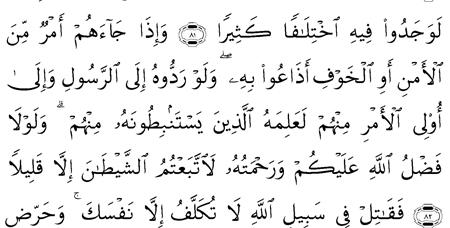 لَوَجَدُوا۟ فِيهِ ٱخْتِلَـٰفًا كَثِيرًا ٨١ وَإِذَا جَآءَهُمْ أَمْرٌ مِّنَ
ٱلْأَمْنِ أَوِ ٱلْخَوْفِ أَذَاعُوا۟ بِهِۦ ۖ وَلَوْ رَدُّوهُ إِلَى ٱلرَّسُولِ وَإِلَىٰٓ
أُو۟لِى ٱلْأَمْرِ مِنْهُمْ لَعَلِمَهُ ٱلَّذِينَ يَسْتَنۢبِطُونَهُۥ مِنْهُمْ ۗ وَلَوْلَا
فَضْلُ ٱللَّهِ عَلَيْكُمْ وَرَحْمَتُهُۥ لَٱتَّبَعْتُمُ ٱلشَّيْطَـٰنَ إِلَّا قَلِيلًا
٨٢ فَقَـٰتِلْ فِى سَبِيلِ ٱللَّهِ لَا تُكَلَّفُ إِلَّا نَفْسَكَ ۚ وَحَرِّضِ